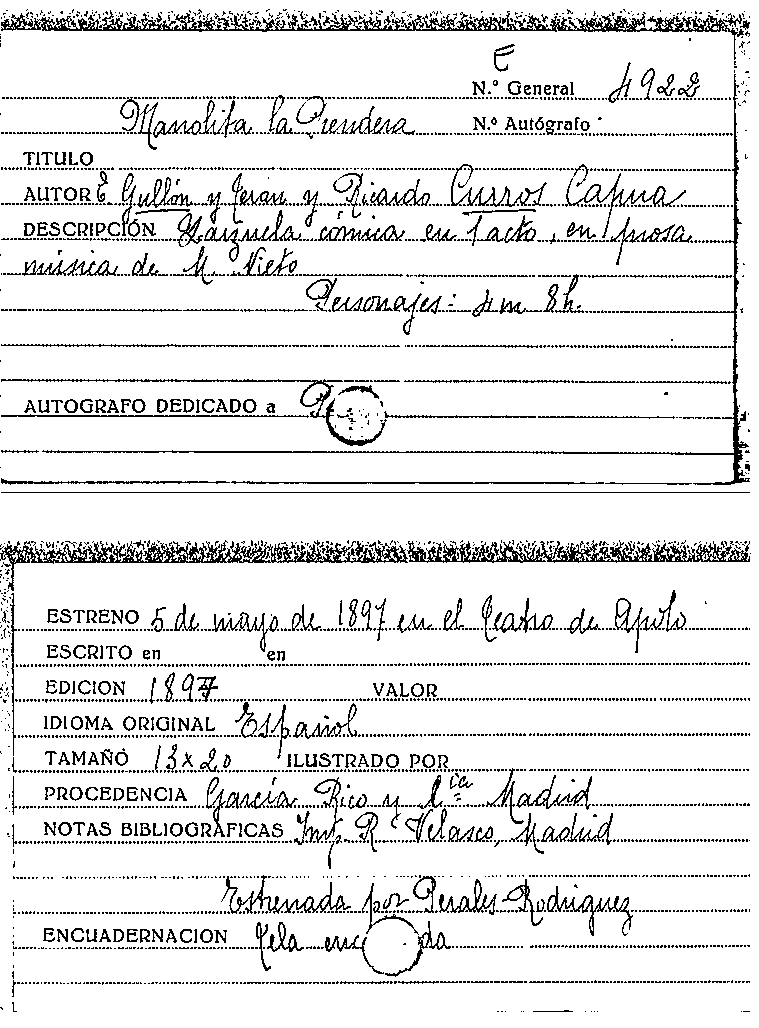 E
N.º General 4922
Manolita la Prendera N.º Autógrafo
TITULO
AUTOR E Gullón y Terán y Ricardo Curros Capua
DESCRIPCIÓN Zarzuela cómica en 1 acto, en prosa
música de M. Nieto
Personajes: 4 m 8 h.
AUTOGRAFO DEDICADO a
ESTRENO 5 de mayo de 1897 en el Teatro de Apolo
ESCRITO en en
EDICION 1897 VALOR
IDIOMA ORIGINAL Español
TAMAÑO 13 x 20 ILUSTRADO POR
PROCEDENCIA García Rico y Cía Madrid
NOTAS BIBLIOGRAFICAS Imp. R. Velasco, Madrid
Estrenada por Perales-Rodriguez
ENCUADERNACION Tela enc da